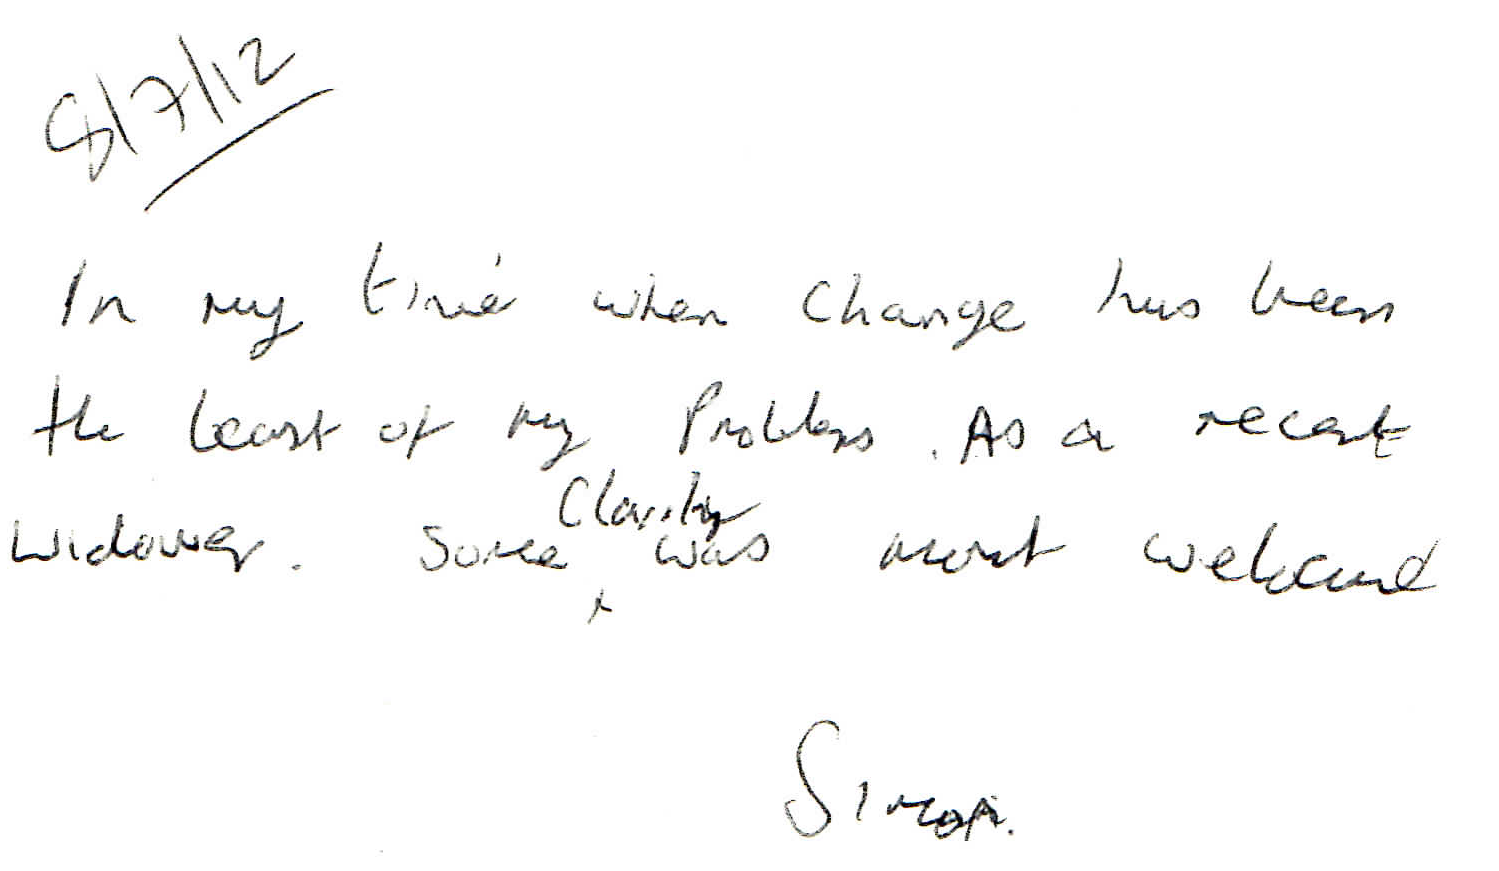 8/7/12
In my time when Change has been
the least of my Problems. As a recent
Widower. Some Clarity was most welcome
Simon.